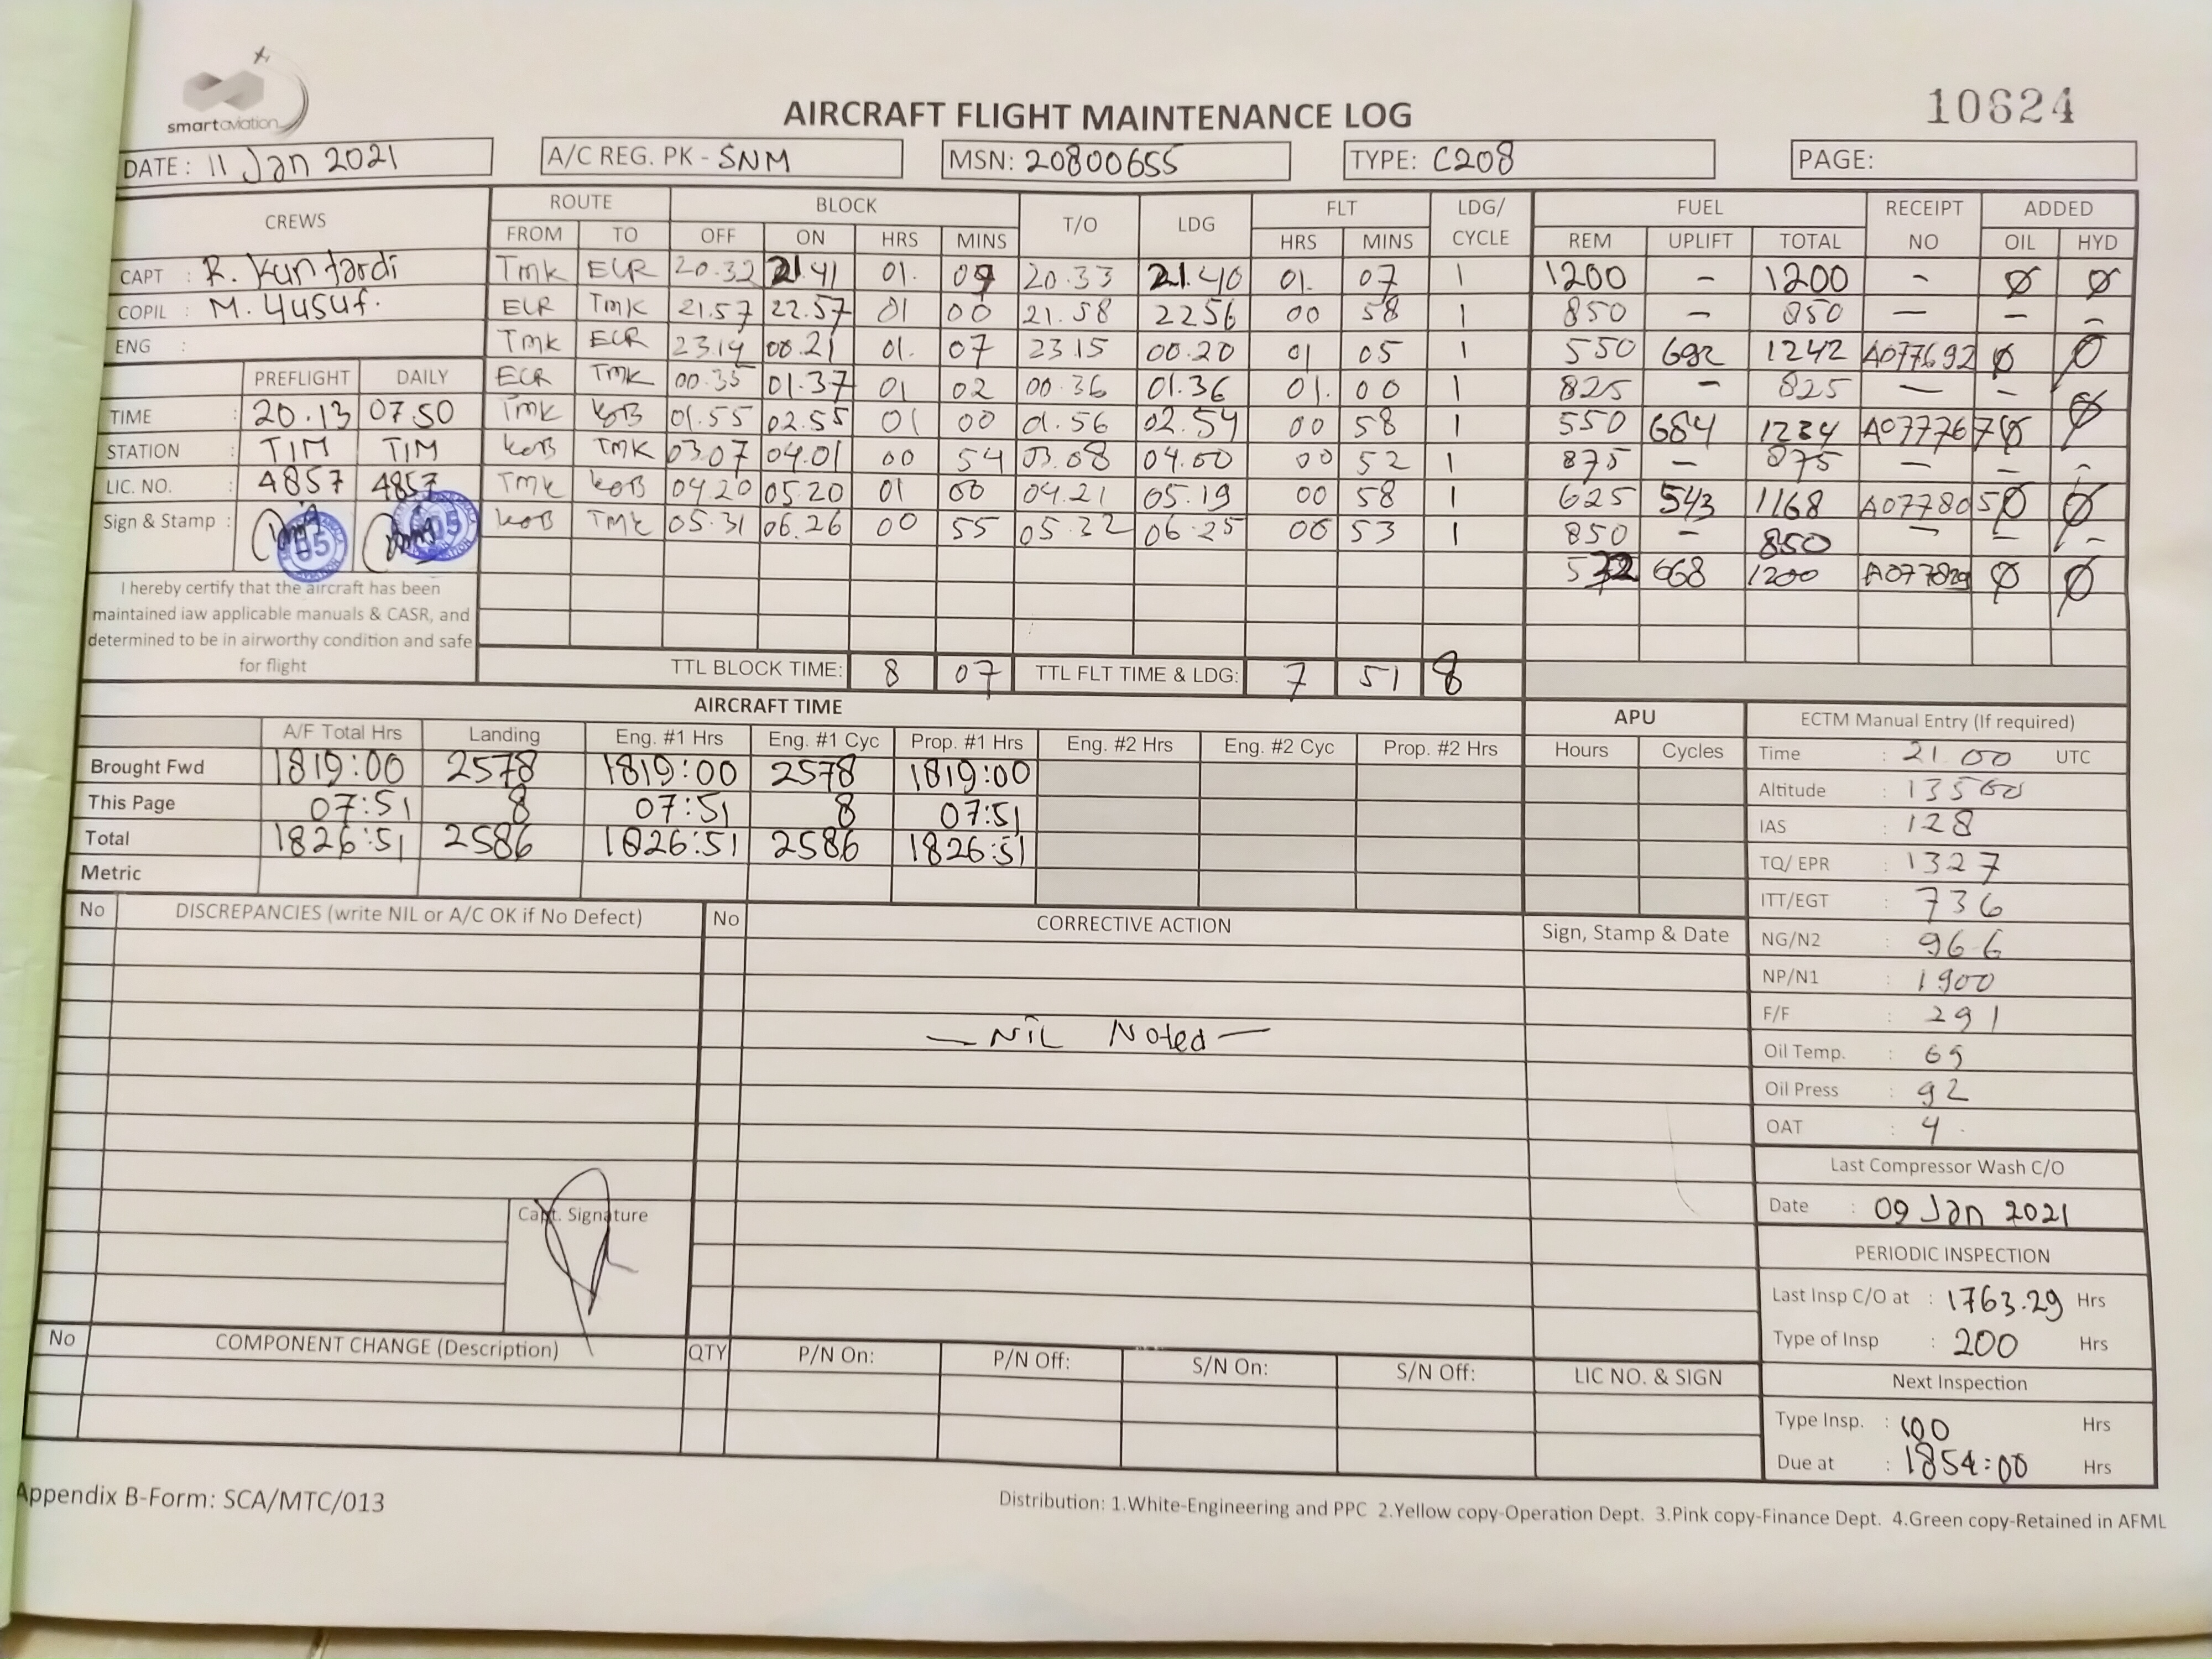 smartaviation
AIRCRAFT FLIGHT MAINTENANCE LOG
10624
DATE : 11 Jan 2021 A/C REG. PK - SNM MSN: 20800655 TYPE: C208 PAGE:
CREWS ROUTE BLOCK T/O LDG FLT LDG/ CYCLE FUEL RECEIPT NO ADDED
FROM TO OFF ON HRS MINS HRS MINS REM UPLIFT TOTAL OIL HYD
CAPT : R. Kuntardi Tmk ELR 20.32 21.41 01. 09 20.33 21.40 01. 07 1 1200 - 1200 - Ø Ø
COPIL : M. Yusuf. ELR Tmk 21.57 22.57 01 00 21.58 2256 00 58 1 850 - 850 - - -
ENG : Tmk ELR 23.14 00.21 01. 07 23.15 00.20 01 05 1 550 692 1242 A077692 Ø Ø
PREFLIGHT DAILY ELR TMK 00.35 01.37 01 02 00.36 01.36 01. 00 1 825 - 825 - - Ø
TIME : 20.13 07.50 Tmk KOB 01.55 02.55 01 00 01.56 02.54 00 58 1 550 684 1234 A077767 Ø
STATION : TIM TIM KOB TMK 03.07 04.01 00 54 03.08 04.00 00 52 1 875 - 875 - - -
LIC. NO. : 4857 4857 Tmk KOB 04.20 05.20 01 00 04.21 05.19 00 58 1 625 543 1168 A077805 Ø Ø
Sign & Stamp : KOB TMK 05.31 06.26 00 55 05.32 06.25 00 53 1 850 - 850 - - -
532 668 1200 A077829 Ø Ø
I hereby certify that the aircraft has been
maintained iaw applicable manuals & CASR, and
determined to be in airworthy condition and safe
for flight
TTL BLOCK TIME: 8 07 TTL FLT TIME & LDG: 7 51 8
AIRCRAFT TIME APU ECTM Manual Entry (If required)
A/F Total Hrs Landing Eng. #1 Hrs Eng. #1 Cyc Prop. #1 Hrs Eng. #2 Hrs Eng. #2 Cyc Prop. #2 Hrs Hours Cycles
Brought Fwd 1819:00 2578 1819:00 2578 1819:00
This Page 07:51 8 07:51 8 07:51
Total 1826:51 2586 1826:51 2586 1826:51
Metric
Time : 21.00 UTC
Altitude : 13500
IAS : 128
TQ/ EPR : 1327
ITT/EGT : 736
NG/N2 : 96.6
NP/N1 : 1900
F/F : 291
Oil Temp. : 69
Oil Press : 92
OAT : 4
No DISCREPANCIES (write NIL or A/C OK if No Defect) No CORRECTIVE ACTION Sign, Stamp & Date
- NIL Noted -
Capt. Signature
Last Compressor Wash C/O
Date : 09 Jan 2021
PERIODIC INSPECTION
Last Insp C/O at : 1763.29 Hrs
Type of Insp : 200 Hrs
Next Inspection
Type Insp. : 100 Hrs
Due at : 1854:00 Hrs
No COMPONENT CHANGE (Description) QTY P/N On: P/N Off: S/N On: S/N Off: LIC NO. & SIGN
Appendix B-Form: SCA/MTC/013
Distribution: 1.White-Engineering and PPC 2.Yellow copy-Operation Dept. 3.Pink copy-Finance Dept. 4.Green copy-Retained in AFML